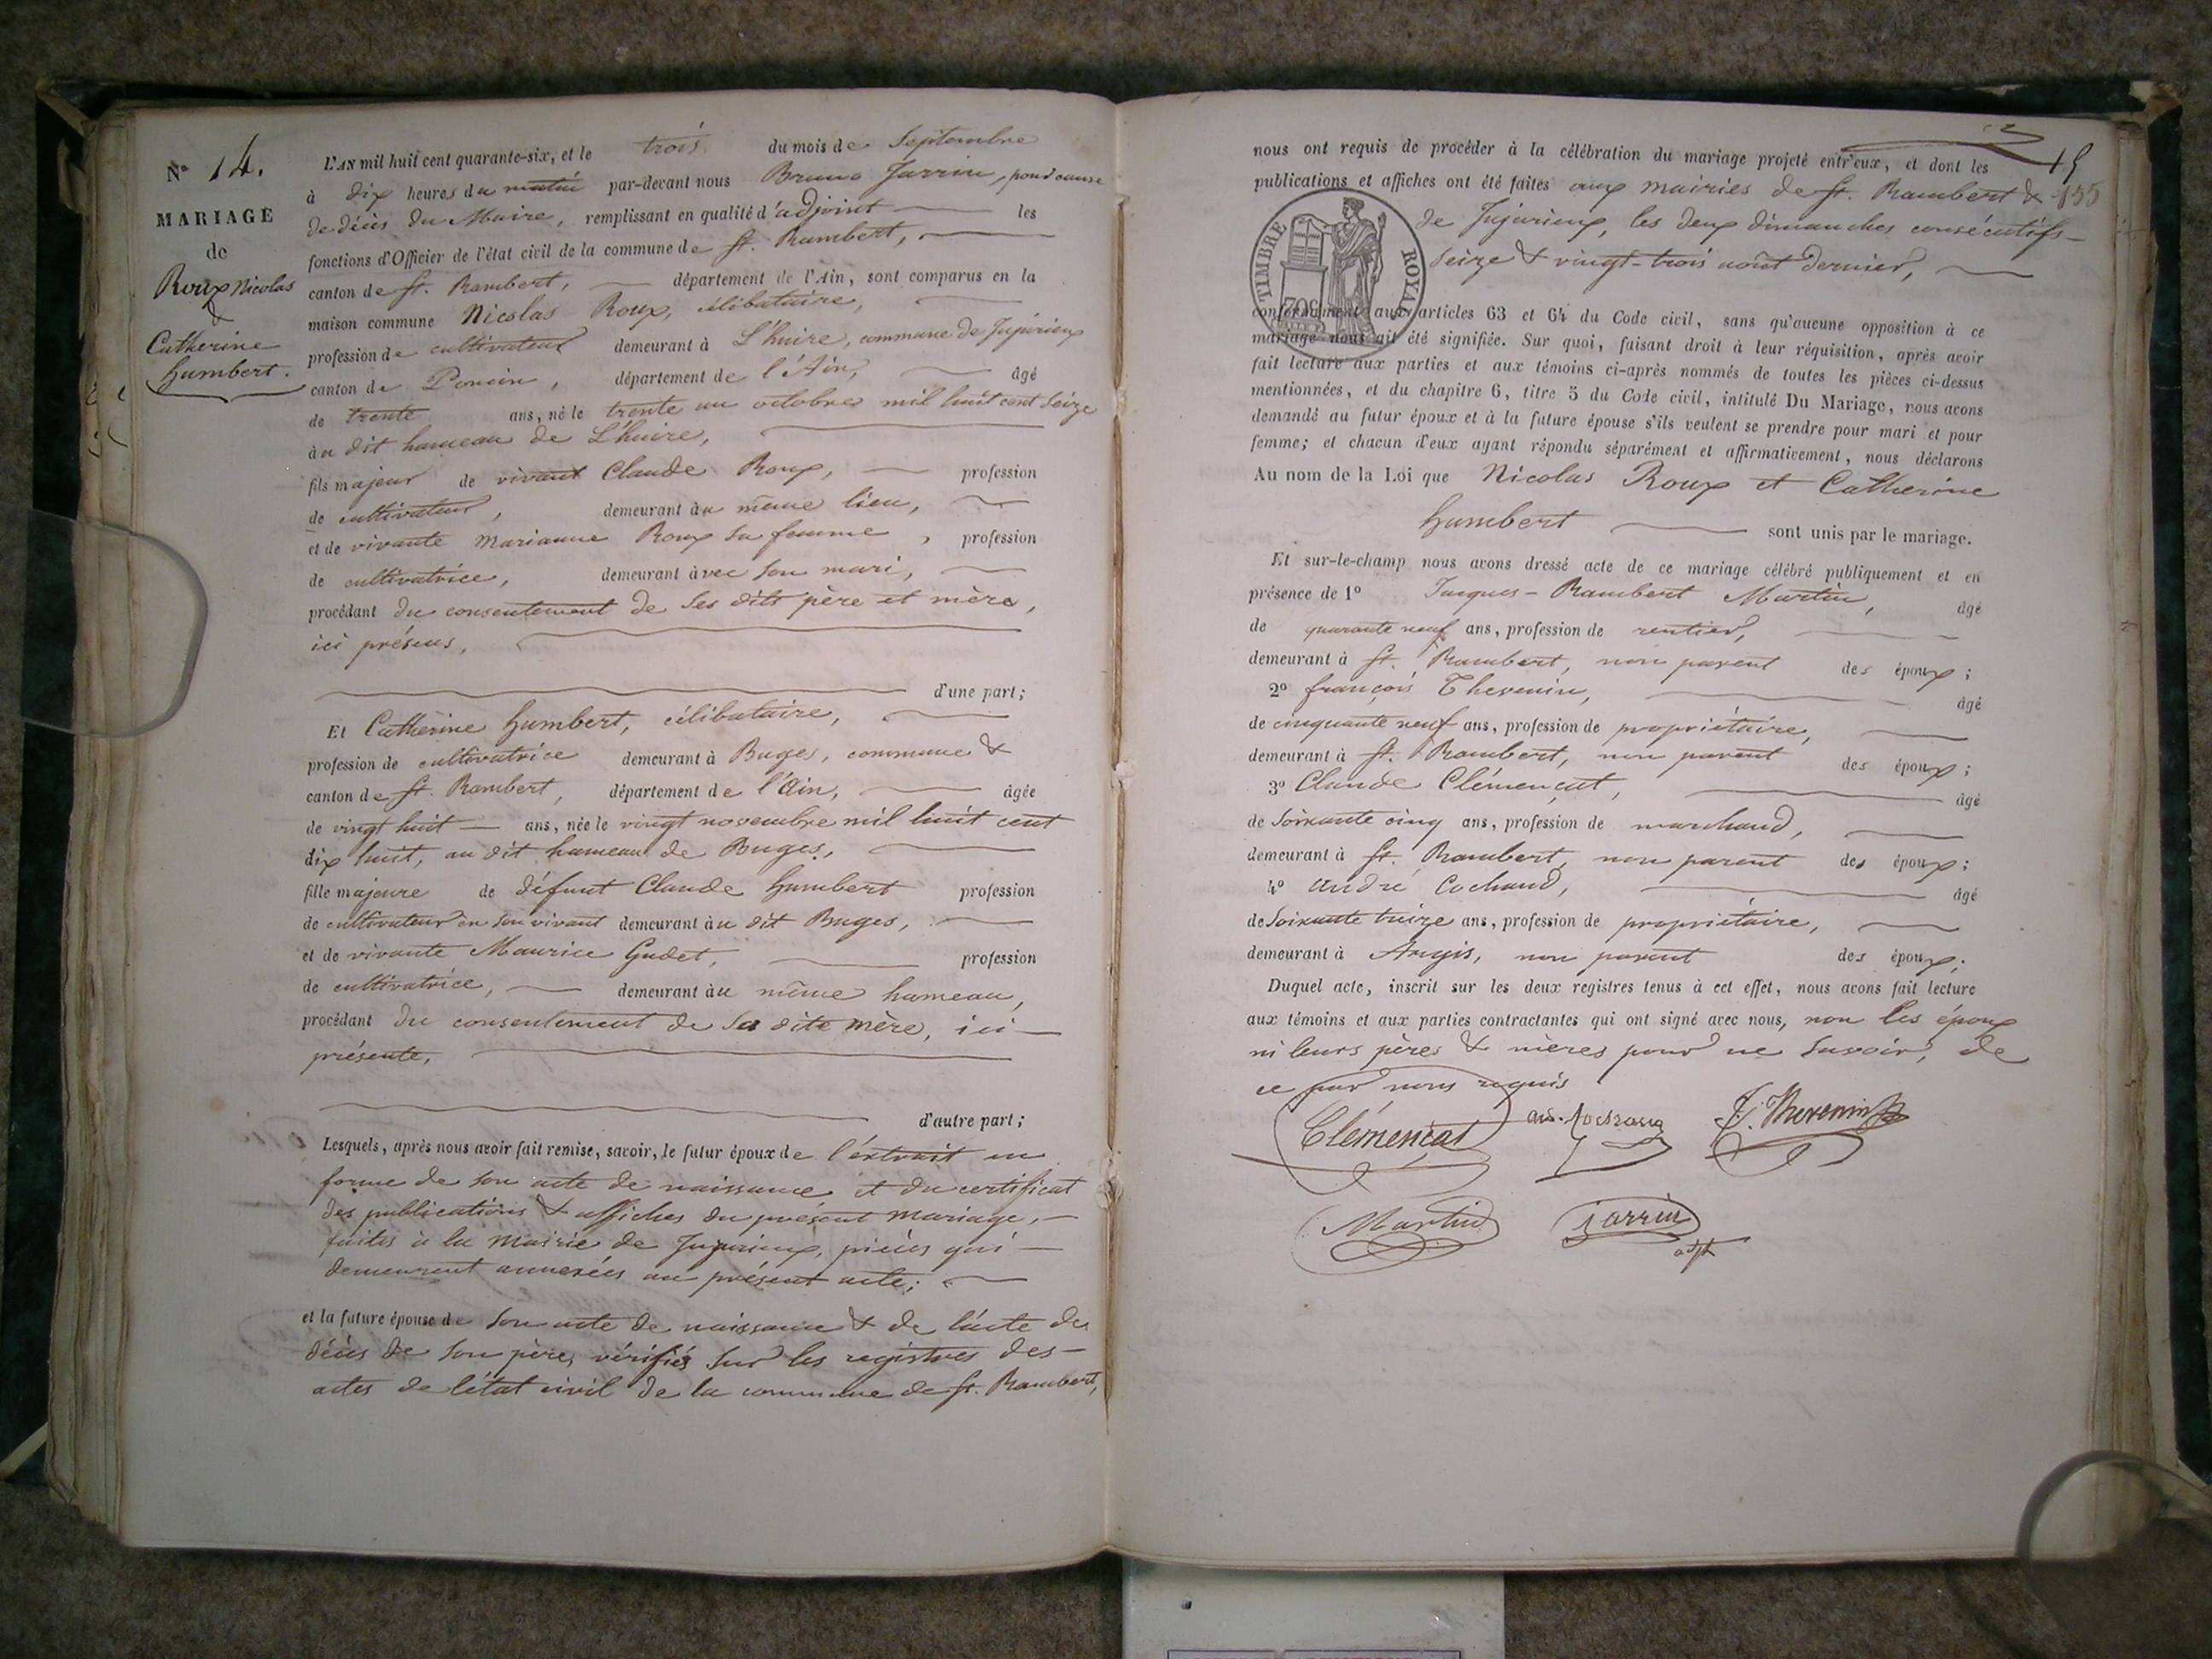 N° 14.
MARIAGE
de
Roux Nicolas
&
Catherine
humbert.
L'AN mil huit cent quarante-six, et le trois du mois de Septembre
à dix heures du matin par-devant nous Bruno Jarrin, pour cause
de décès du Maire, remplissant en qualité d'adjoint les
fonctions d'Officier de l'état civil de la commune de St. Rambert,
canton de St. Rambert, département de l'Ain, sont comparus en la
maison commune Nicolas Roux, célibataire,
profession de cultivateur demeurant à L'huire, commune de Jujurieux
canton de Poncin, département de l'Ain, âgé
de trente ans, né le trente un octobre mil huit cent seize
au dit hameau de L'huire,
fils majeur de vivant Claude Roux, profession
de cultivateur, demeurant au même lieu,
et de vivante Marianne Roux sa femme, profession
de cultivatrice, demeurant avec son mari,
procédant du consentement de ses dits père et mère,
ici présens,
d'une part;
Et Catherine humbert, célibataire,
profession de cultivatrice demeurant à Buges, commune &
canton de St. Rambert, département de l'Ain, âgée
de vingt huit ans, née le vingt novembre mil huit cent
dix huit, au dit hameau de Buges,
fille majeure de défunt Claude humbert profession
de cultivateur en son vivant demeurant au dit Buges,
et de vivante Maurice Gudet, profession
de cultivatrice, demeurant au même hameau,
procédant du consentement de sa dite mère, ici
présente,
d'autre part;
Lesquels, après nous avoir fait remise, savoir, le futur époux de l'extrait en
forme de son acte de naissance et du certificat
des publications & affiches du présent mariage,
faites à la Mairie de Jujurieux, pièces qui
demeurent annexées au présent acte;
et la future épouse de son acte de naissance & de l'acte de
décès de son père, vérifiés sur les registres des
actes de l'état civil de la commune de St. Rambert,
15
155
nous ont requis de procéder à la célébration du mariage projeté entr'eux, et dont les
publications et affiches ont été faites aux mairies de St. Rambert &
de Jujurieux, les deux dimanches consécutifs
seize & vingt-trois août dernier,
TIMBRE ROYAL
70c
conformément aux articles 63 et 64 du Code civil, sans qu'aucune opposition à ce
mariage nous ait été signifiée. Sur quoi, faisant droit à leur réquisition, après avoir
fait lecture aux parties et aux témoins ci-après nommés de toutes les pièces ci-dessus
mentionnées, et du chapitre 6, titre 5 du Code civil, intitulé Du Mariage, nous avons
demandé au futur époux et à la future épouse s'ils veulent se prendre pour mari et pour
femme; et chacun d'eux ayant répondu séparément et affirmativement, nous déclarons
Au nom de la Loi que Nicolas Roux et Catherine
humbert sont unis par le mariage.
Et sur-le-champ nous avons dressé acte de ce mariage célébré publiquement et en
présence de 1° Jacques-Rambert Martin, âgé
de quarante neuf ans, profession de rentier,
demeurant à St. Rambert, non parent des époux;
2° françois Thevenin, âgé
de cinquante neuf ans, profession de propriétaire,
demeurant à St. Rambert, non parent des époux;
3° Claude Clémençat, âgé
de soixante cinq ans, profession de marchand,
demeurant à St. Rambert, non parent des époux;
4° André Cochaud, âgé
de soixante treize ans, profession de propriétaire,
demeurant à Argis, non parent des époux;
Duquel acte, inscrit sur les deux registres tenus à cet effet, nous avons fait lecture
aux témoins et aux parties contractantes qui ont signé avec nous, non les époux
ni leurs pères & mères pour ne savoir, de
ce par nous requis
Clémençat F. Thevenin
Martin jarrin
adjt